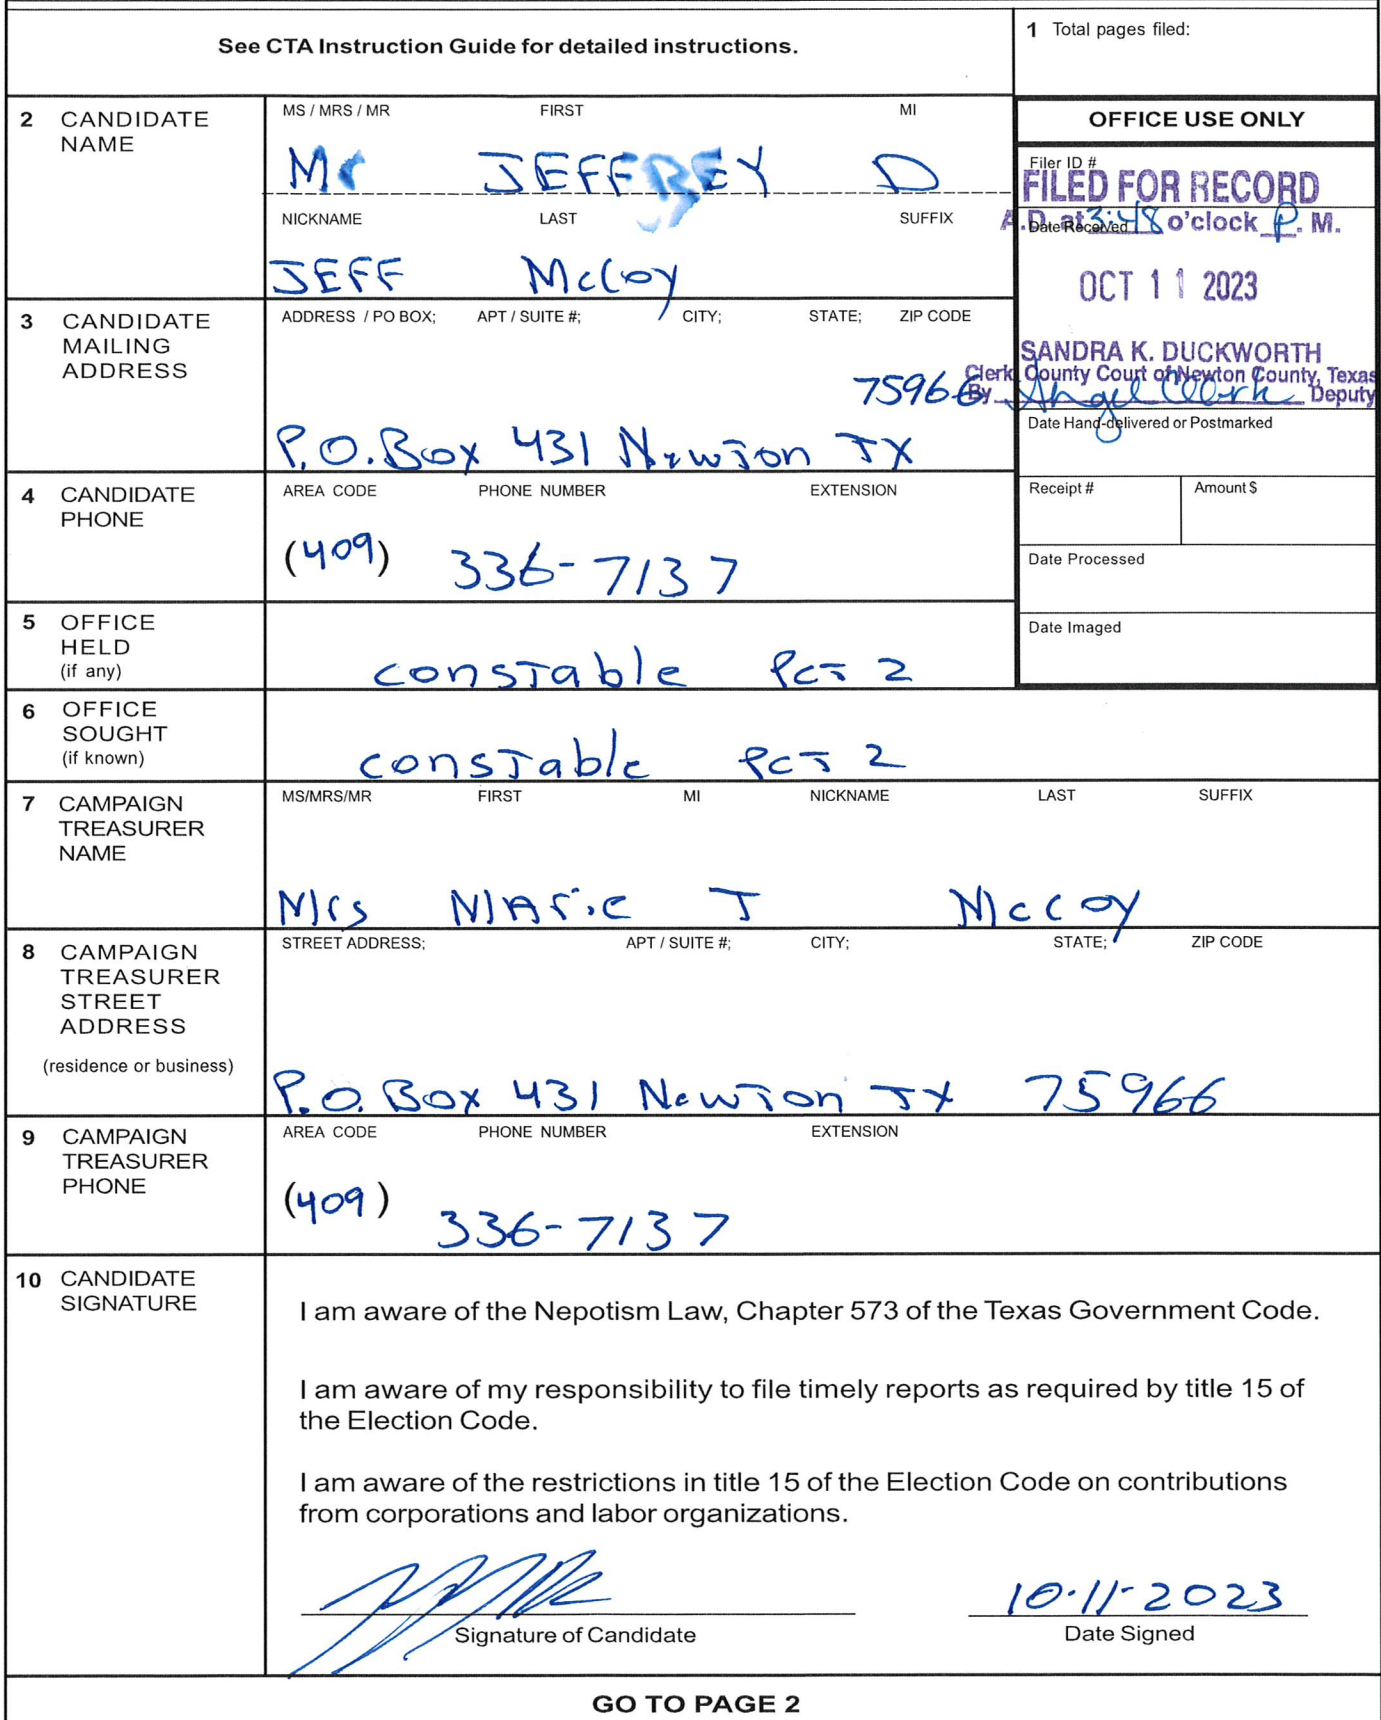 See CTA Instruction Guide for detailed instructions.
1 Total pages filed:
2 CANDIDATE NAME
MS / MRS / MR FIRST MI
Mr JEFFREY D
NICKNAME LAST SUFFIX
JEFF McCoy
OFFICE USE ONLY
Filer ID #
FILED FOR RECORD
A.D. at 3:48 o'clock P. M.
Date Received
OCT 11 2023
SANDRA K. DUCKWORTH
Clerk County Court of Newton County, Texas
By Angel Clark Deputy
Date Hand-delivered or Postmarked
Receipt # Amount $
Date Processed
Date Imaged
3 CANDIDATE MAILING ADDRESS
ADDRESS / PO BOX; APT / SUITE #; CITY; STATE; ZIP CODE
75966
P.O. Box 431 Newton TX
4 CANDIDATE PHONE
AREA CODE PHONE NUMBER EXTENSION
(409) 336-7137
5 OFFICE HELD (if any)
constable Pct 2
6 OFFICE SOUGHT (if known)
constable Pct 2
7 CAMPAIGN TREASURER NAME
MS/MRS/MR FIRST MI NICKNAME LAST SUFFIX
Mrs Marie J McCoy
8 CAMPAIGN TREASURER STREET ADDRESS
(residence or business)
STREET ADDRESS; APT / SUITE #; CITY; STATE; ZIP CODE
P.O. Box 431 Newton TX 75966
9 CAMPAIGN TREASURER PHONE
AREA CODE PHONE NUMBER EXTENSION
(409) 336-7137
10 CANDIDATE SIGNATURE
I am aware of the Nepotism Law, Chapter 573 of the Texas Government Code.
I am aware of my responsibility to file timely reports as required by title 15 of
the Election Code.
I am aware of the restrictions in title 15 of the Election Code on contributions
from corporations and labor organizations.
10-11-2023
Signature of Candidate Date Signed
GO TO PAGE 2